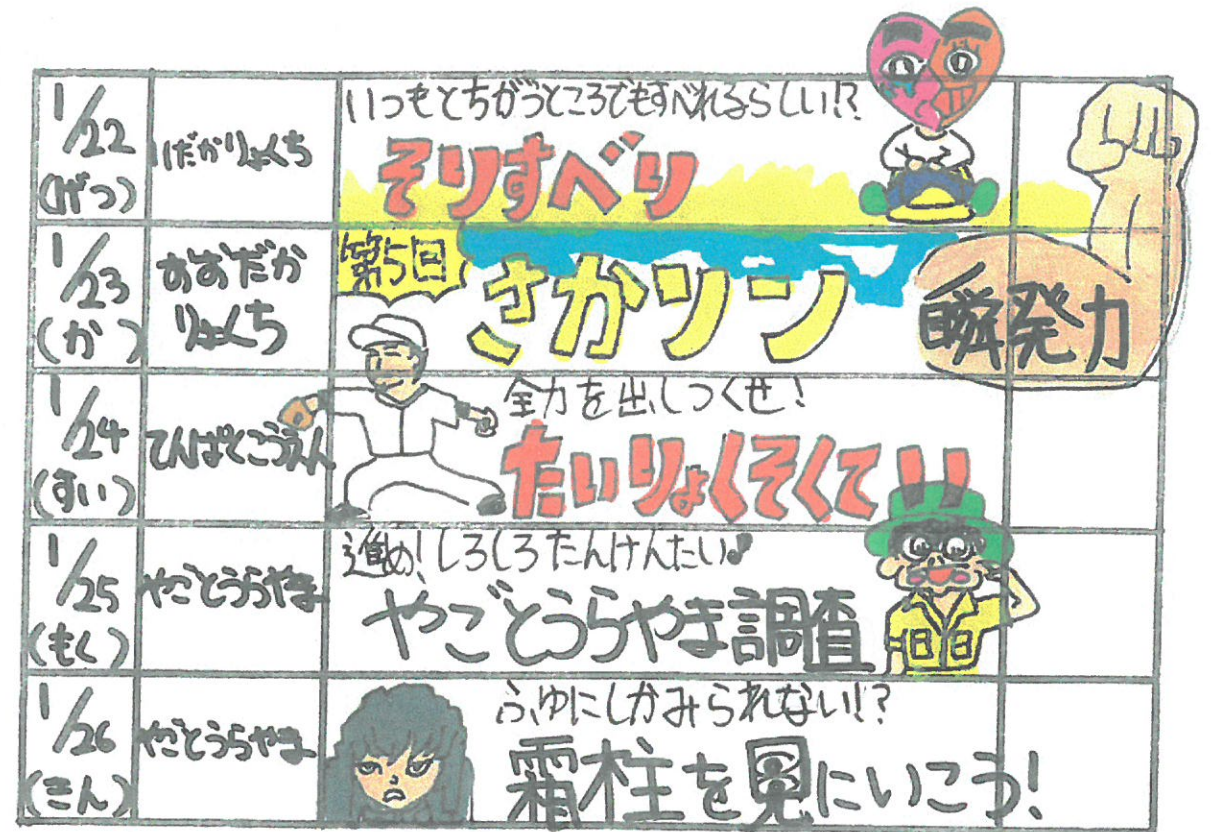 1/22
(げつ)
いだかりょくち
いつもとちがうところでもすべれるらしい!?
そりすべり
1/23
(か)
おおだか
りょくち
第5回
さかリンソン
瞬発力
1/24
(すい)
てんぱくこうえん
全力を出しつくせ!
たいりょくそくてい!!
1/25
(もく)
やごとうらやま
進め!しろしろたんけんたい♪
やごとうらやま調査
1/26
(きん)
やごとうらやま
ふゆにしかみられない!?
霜柱を見にいこう!